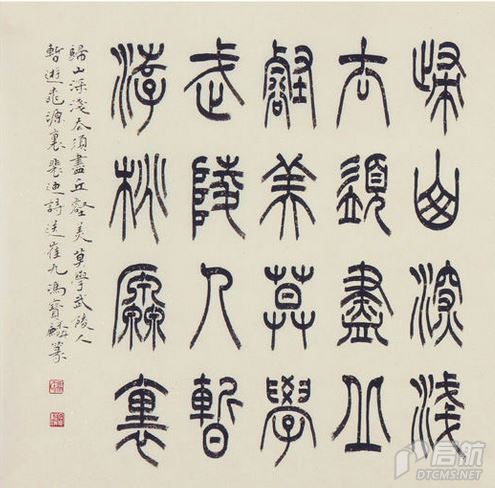 歸山深淺
去須盡丘
壑美莫學
武陵人暫
游桃源裏
歸山深淺去須盡丘壑美莫學武陵人
暫遊桃源裏裴迪詩送崔九馮寶麟篆
启航
DTCMS.NET